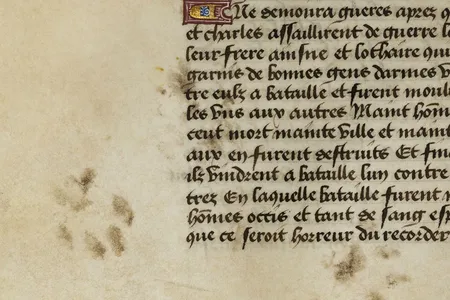 Ne demoura gueres apres q
et charles assaillirent de guerre l
leur frere aisne et lothaire qui
garnis de bonnes gens darmes v
tre eulx a bataille et furent moul
les vns aux autres Maint hom̄
ceut mort mainte ville et maint
aux en furent destruits Et fin
ilz vindrent a bataille lun contre
trez En laquelle bataille furent
hom̄es occis et tant de sang esp
que ce seroit horreur du recorder